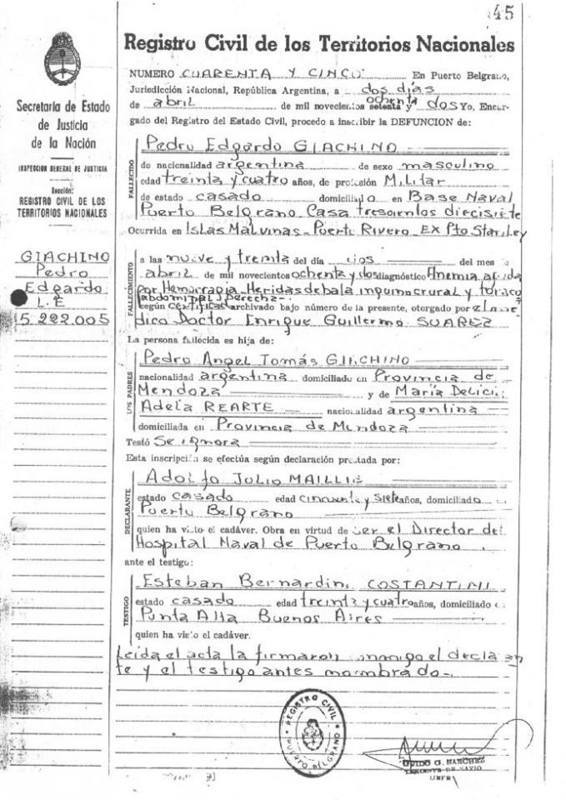 45
Registro Civil de los Territorios Nacionales
Secretaría de Estado
de Justicia
de la Nación
INSPECCION GENERAL DE JUSTICIA
Sección:
REGISTRO CIVIL DE LOS
TERRITORIOS NACIONALES
GIACHINO
Pedro
Edgardo
L.E
5.222.005
NUMERO CUARENTA Y CINCO En Puerto Belgrano,
Jurisdicción Nacional, República Argentina, a dos días
de abril de mil novecientos ochenta y dos Yo, Encar-
gado del Registro del Estado Civil, procedo a inscribir la DEFUNCION de:
FALLECIDO
Pedro Edgardo GIACHINO
de nacionalidad argentina de sexo masculino
edad treinta y cuatro años, de profesión Militar
de estado casado domiciliado en Base Naval
Puerto Belgrano Casa trescientos diecisiete
Ocurrida en Islas Malvinas - Puerto Rivero EX Pto Stanley
FALLECIMIENTO
a las nueve y treinta del día dos del mes
abril de mil novecientos ochenta y dos diagnóstico Anemia aguda
por Hemorragia Heridas de bala inguinocrural y toraco
(abdominal) Derecha-
según certificado archivado bajo número de la presente, otorgado por el
dico Doctor Enrique Guillermo SUAREZ
La persona fallecida es hija de:
LOS PADRES
Pedro Angel Tomás GIACHINO
nacionalidad argentina domiciliado en Provincia de
Mendoza y de María Delici
Adela REARTE nacionalidad argentina
domiciliada en Provincia de Mendoza
Testó Se ignora
Esta inscripción se efectúa según declaración prestada por:
DECLARANTE
Adolfo Julio MAILLIE
estado casado edad cincuenta y siete años, domiciliado
Puerto Belgrano
quien ha visto el cadáver. Obra en virtud de ser el Director del
Hospital Naval de Puerto Belgrano.
ante el testigo:
TESTIGO
Esteban Bernardini COSTANTINI
estado casado edad treinta y cuatro años, domiciliado
Punta Alta Buenos Aires
quien ha visto el cadáver.
Leída el acta la firmaron conmigo el declara
te y el testigo antes nombrado-
REGISTRO CIVIL
PUERTO BELGRANO
OVIDO G. SANCHEZ
TENIENTE DE NAVIO